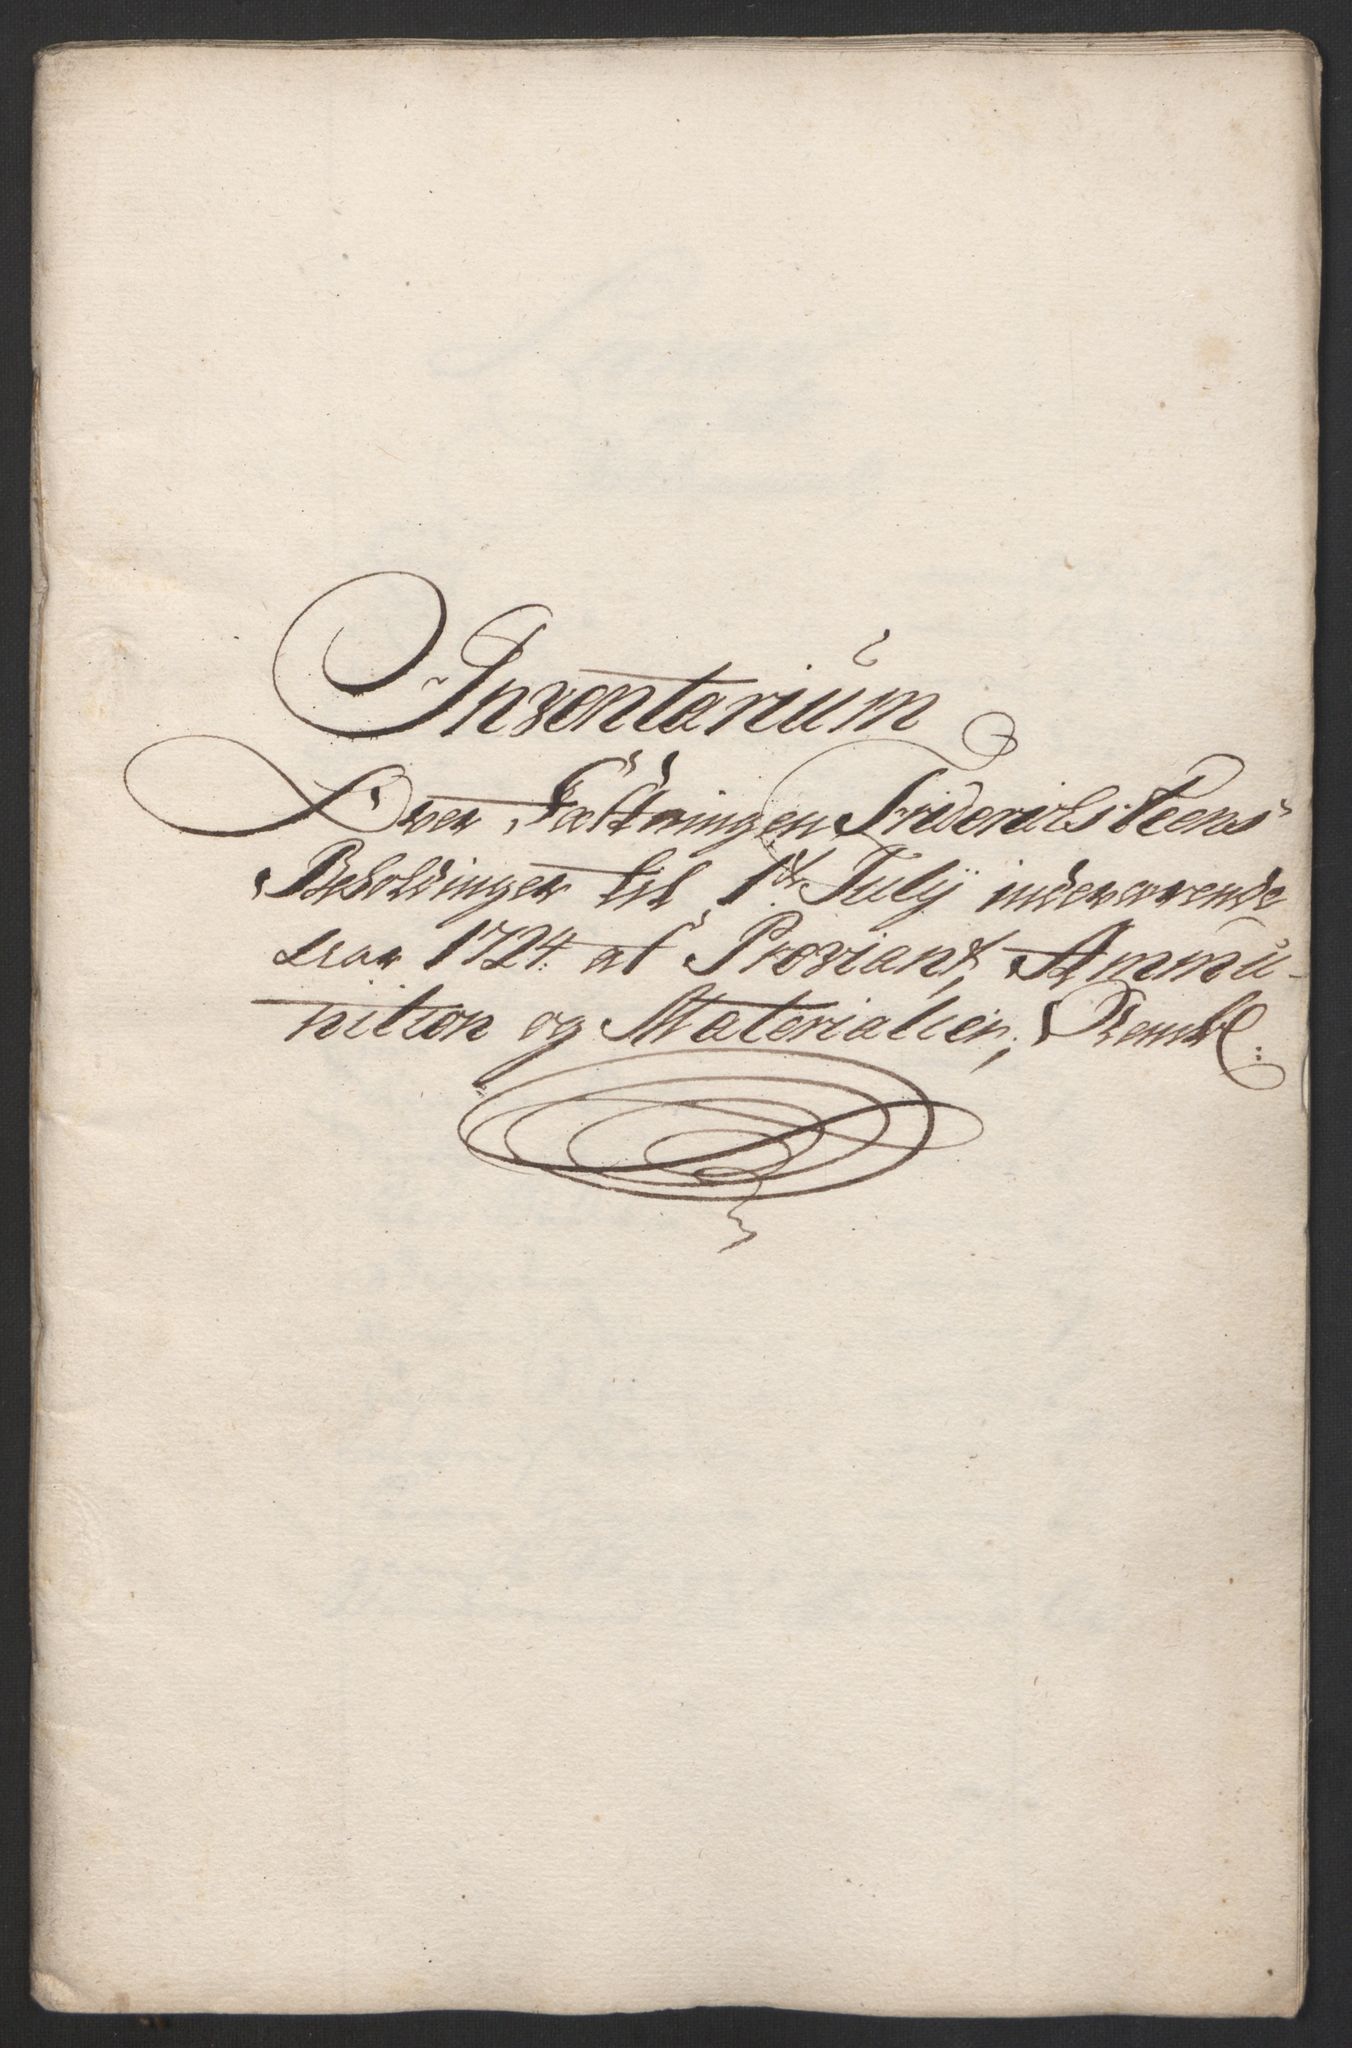 Inventarium
Over Fæstningen Friderichsteens
Beholdinger til 1de July indeværende
aar 1724 af Proviant, Ammu-
nition og Materialier,